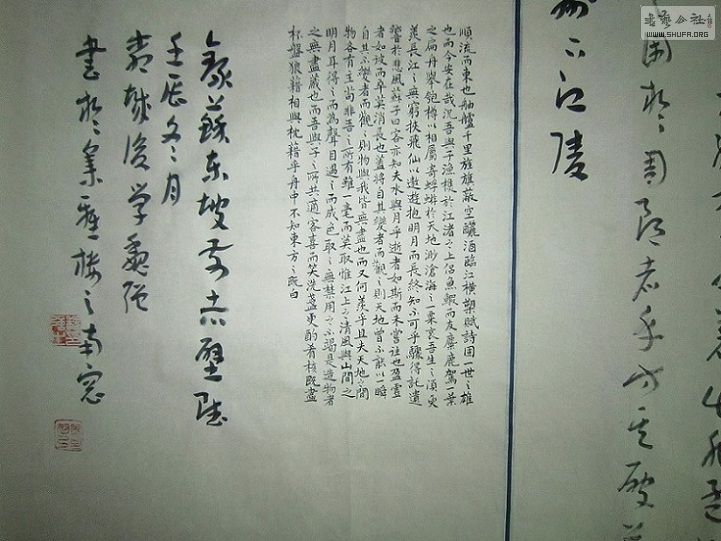 困於周郎者乎方其破
州下江陵
順流而東也舳艫千里旌旗蔽空釃酒臨江橫槊賦詩固一世之雄
也而今安在哉況吾與子漁樵於江渚之上侶魚蝦而友麋鹿駕一葉
之扁舟舉匏樽以相屬寄蜉蝣於天地渺滄海之一粟哀吾生之須臾
羨長江之無窮挾飛仙以遨遊抱明月而長終知不可乎驟得託遺
響於悲風蘇子曰客亦知夫水與月乎逝者如斯而未嘗往也盈虛
者如彼而卒莫消長也蓋將自其變者而觀之則天地曾不能以一瞬
自其不變者而觀之則物與我皆無盡也而又何羨乎且夫天地之間
物各有主苟非吾之所有雖一毫而莫取惟江上之清風與山間之
明月耳得之而為聲目遇之而成色取之無禁用之不竭是造物者
之無盡藏也而吾與子之所共適客喜而笑洗盞更酌肴核既盡
杯盤狼籍相與枕藉乎舟中不知東方之既白
錄蘇東坡前赤壁賦
壬辰冬月
後學魏強
書於集雅樓之南窓
WWW.SHUFA.ORG